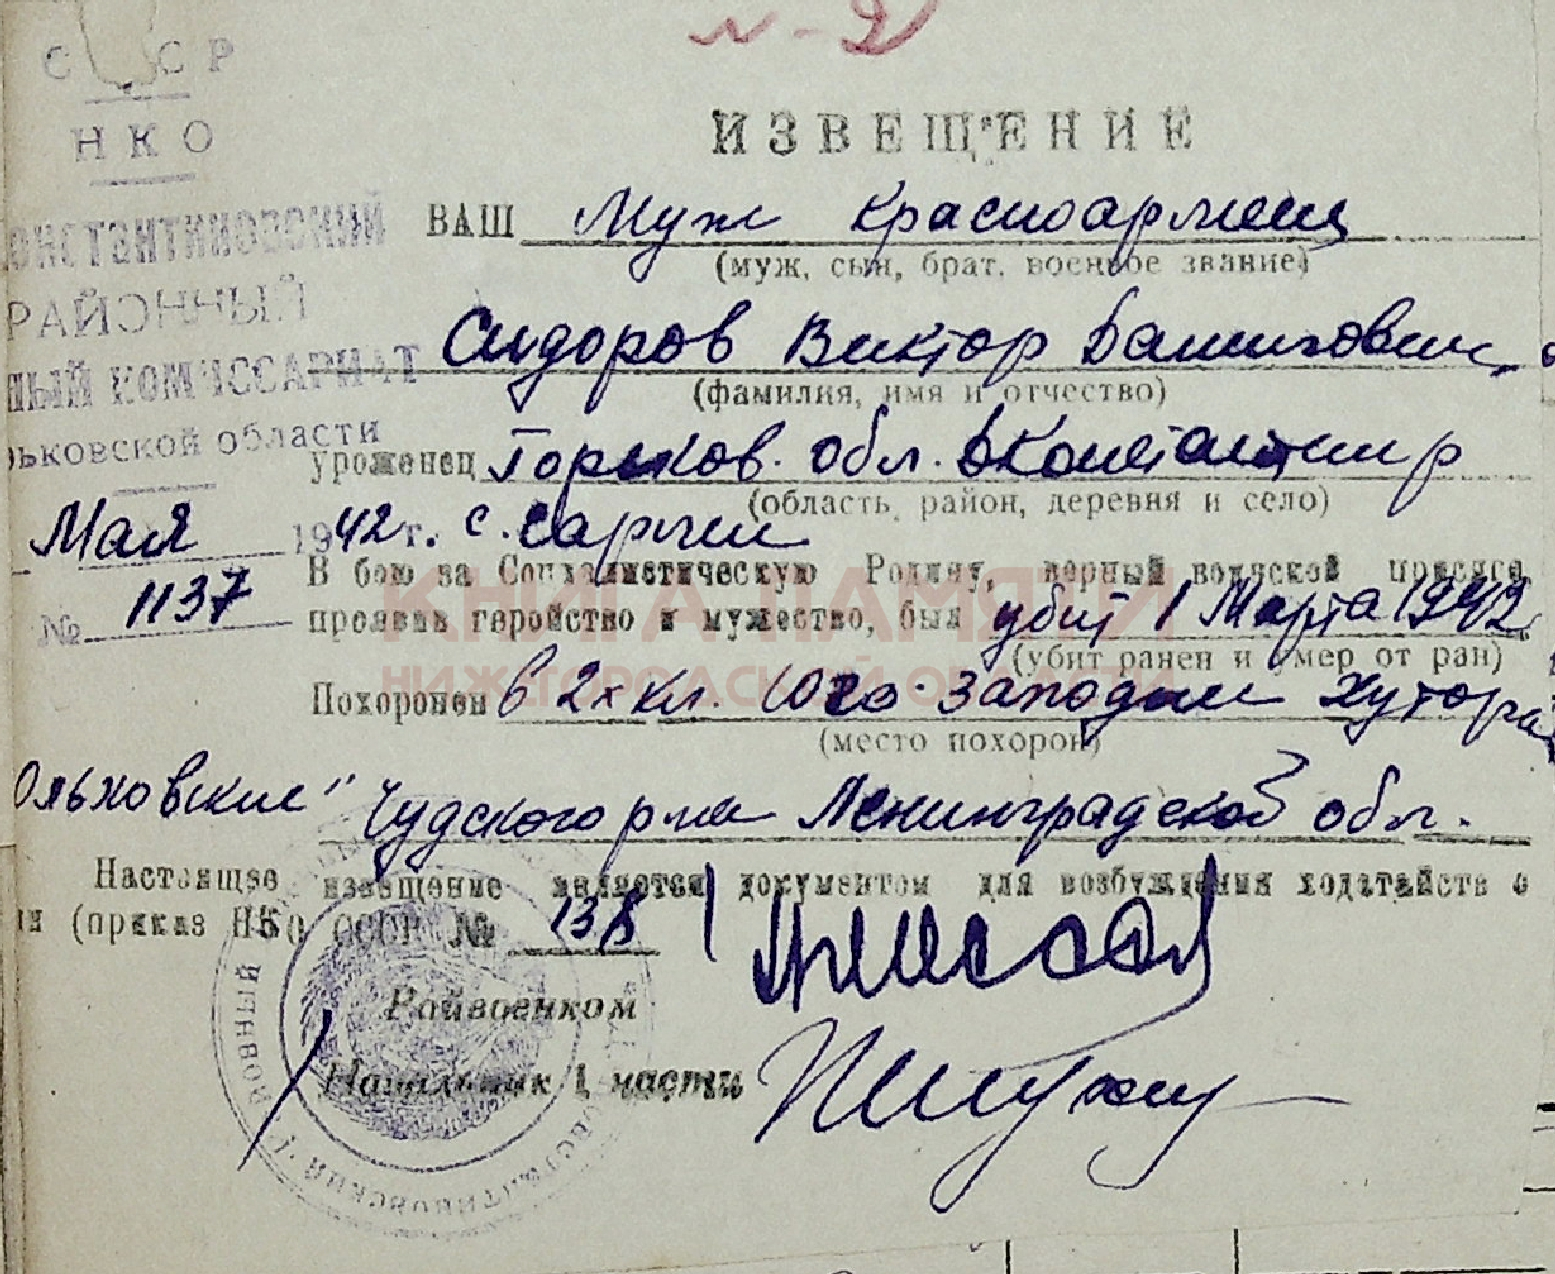 ИЗВЕЩЕНИЕ
С СР
НКО
ОНСТАНТИНОВСКИЙ
РАЙОННЫЙ
НЫЙ КОМИССАРИАТ
рьковской области
Мая 1942 г.
№ 1137
ВАШ Муж красноармеец
(муж, сын, брат, военное звание)
Сидоров Виктор
(фамилия, имя и отчество)
уроженец Горьков. обл.
(область, район, деревня и село)
с.
В бою за Социалистическую Родину, верный воинской присяге
проявив геройство и мужество, был убит 1 Марта 1942
(убит ранен и умер от ран)
Похоронен в 2х кл. Юго-западнее хутора
(место похорон)
Ольховские" Чудского р-на Ленинградской обл.
Настоящее извещение является документом для возбуждения ходатайств о
ии (приказ НКО СССР № 138
Райвоенком
Начальник 1 части
КНИГА ПАМЯТИ
НИЖЕГОРОДСКОЙ ОБЛАСТИ